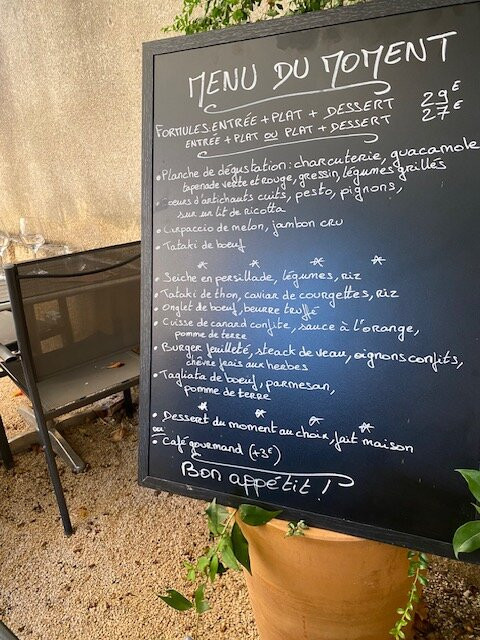 MENU DU MOMENT
FORMULES: ENTRÉE + PLAT + DESSERT 29€
ENTRÉE + PLAT OU PLAT + DESSERT 27€
• Planche de dégustation: charcuterie, guacamole
tapenade verte et rouge, gressin, légumes grillés
• Coeurs d'artichauts cuits, pesto, pignons,
sur un lit de ricotta
• Carpaccio de melon, jambon cru
• Tataki de boeuf
* * * *
• Seiche en persillade, légumes, riz
• Tataki de thon, caviar de courgettes, riz
• Onglet de boeuf, beurre truffé
• Cuisse de canard confite, sauce à l'orange,
pomme de terre
• Burger feuilleté, steack de veau, oignons confits,
chèvre frais aux herbes
• Tagliata de boeuf, parmesan,
pomme de terre
* * * *
• Dessert du moment au choix, fait maison
ou
• Café gourmand (+3€)
Bon appétit !